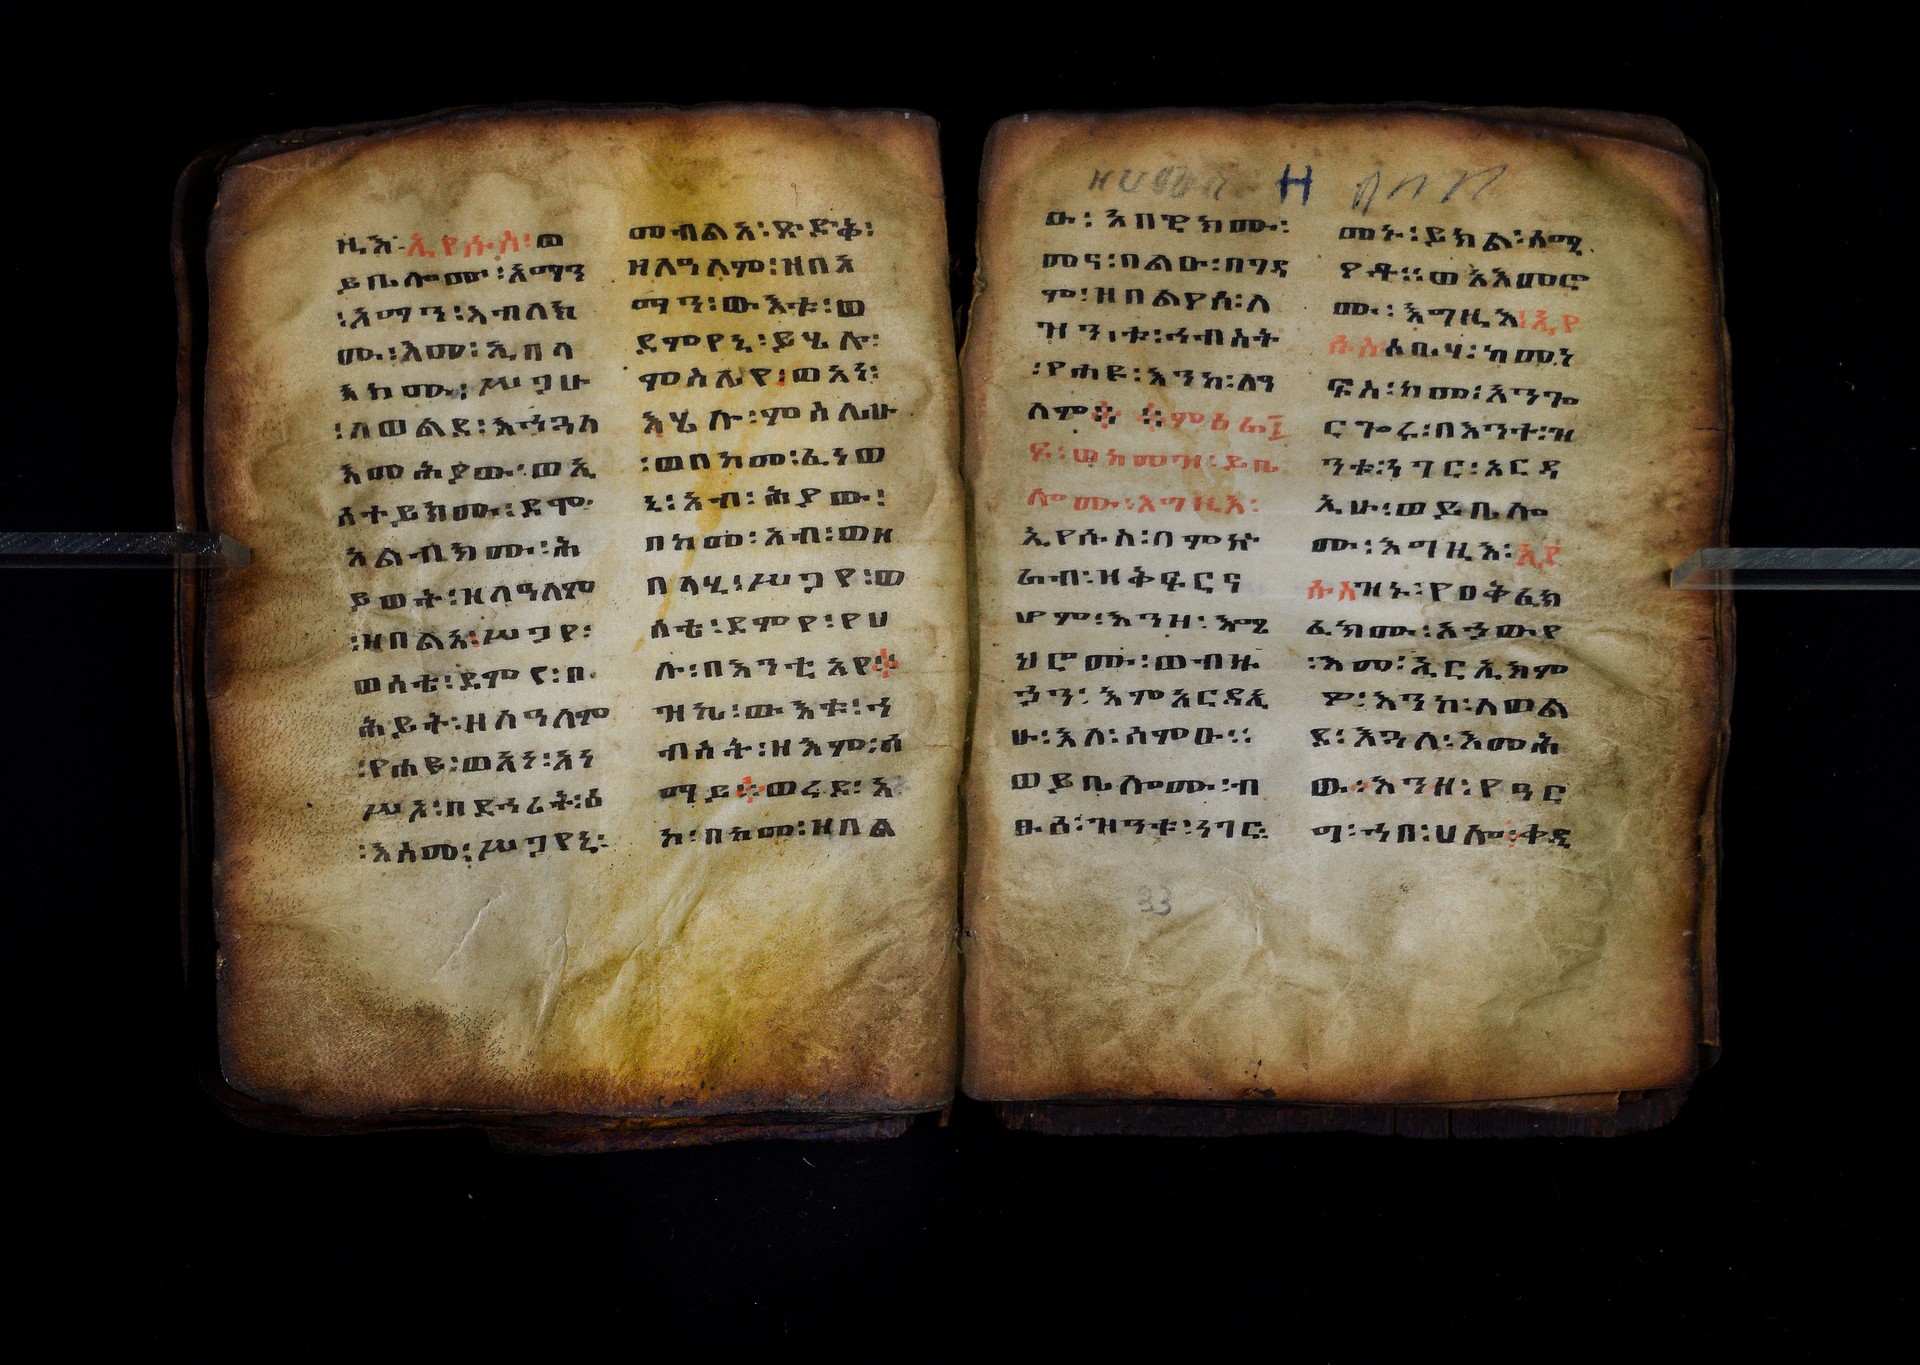 ዚእ፡ ኢየሱስ፡ ወ
ይቤሎሙ፡ አማን
፡አማን፡ እብለክ
ሙ፡ እመ፡ ኢበላ
እክሙ፡ ሥጋሁ
፡ለወልደ፡ እጓለ
እመሕያው፡ ወኢ
ሰተይክሙ፡ ደሞ
አልብክሙ፡ ሕ
ይወት፡ ዘለዓለም
፡ዘበልአ፡ ሥጋየ፡
ወሰቲ፡ ደምየ፡ ቦ
ሕይት፡ ዘለዓለም
፡የሐዩ፡ ወአነ፡ አነ
ሥእ፡ በደኃሪት፡ ዕ
፡እስመ፡ ሥጋየኒ፡
መብልእ፡ ጽድቅ፡
ዘለዓለም፡ ዘበአ
ማን፡ ውእቱ፡ ወ
ደምየኒ፡ ይሄሉ፡
ምስሌየ፡ ወአነ፡
እሄሉ፡ ምስሌሁ
፡ወበከመ፡ ፈነወ
ኒ፡ አብ፡ ሕያው፡
በከመ፡ አብ፡ ወዘ
በላሂ፡ ሥጋየ፡ ወ
ሰቲ፡ ደምየ፡ የሀ
ሉ፡ በእንቲአየ።
ዝኬ፡ ውእቱ፡ ኅ
ብስት፡ ዘእም፡ ሰ
ማይ። ወረደ፡ አ
አ፡ በከመ፡ ዘበል
H
ዑ፡ አበዊክሙ፡
መና፡ በልዑ፡ በገዳ
ም፡ ዘበልየሰ፡ ለ
ዝንቱ፡ ኅብስት
፡የሐዩ፡ እንከ፡ ለዓ
ለም። ምዕራ፤
ፍ፡ ወከመዝ፡ ይቤ
ሎሙ፡ እግዚእ፡
ኢየሱስ፡ በምኵ
ራብ፡ ዘቅፍርና
ሆም፡ እንዘ፡ እሜ
ህሮሙ፡ ወብዙ
ኃን፡ እምአርዳኢ
ሁ፡ እለ፡ ሰምዑ።
ወይቤሎሙ፡ ብ
ፁዕ፡ ዝንቱ፡ ነገር፡
መኑ፡ ይክል፡ ሰሚ
ዖቶ። ወአእመሮ
ሙ፡ እግዚእ፡ ኢየ
ሱስ ለቢሃ፡ ከመን
ፍስ፡ ከመ፡ አንጐ
ርጐሩ፡ በእንተ፡ ዝ
ንቱ፡ ነገር፡ አርዳ
ኢሁ፡ ወይቤሎ
ሙ፡ እግዚእ፡ ኢየ
ሱስ ዝኑ፡ የዐቅፈክ
ፈክሙ፡ አኃውየ
፡እመ፡ ኢርኢክም
ዎ፡ እንከ፡ ለወል
ደ፡ እጓለ፡ እመሕ
ው፡ እንዘ፡ የዓር
ግ፡ ኅበ፡ ሀሎ፡ ቀዲ
33